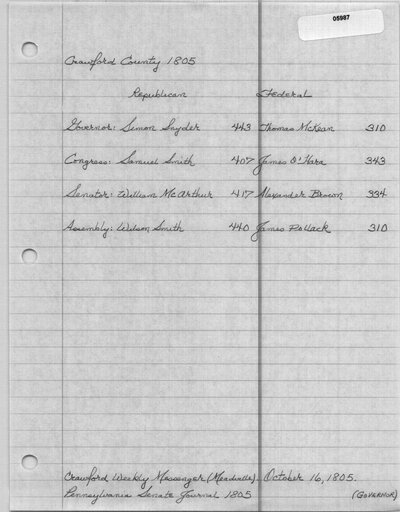 05987
Crawford County 1805
Republican Federal
Governor: Simon Snyder 443 Thomas McKean 310
Congress: Samuel Smith 407 James O'Hara 343
Senator: William McArthur 417 Alexander Brown 334
Assembly: Wilson Smith 440 James Pollack 310
Crawford Weekly Messenger (Meadville). October 16, 1805.
Pennsylvania Senate Journal 1805 (GOVERNOR)